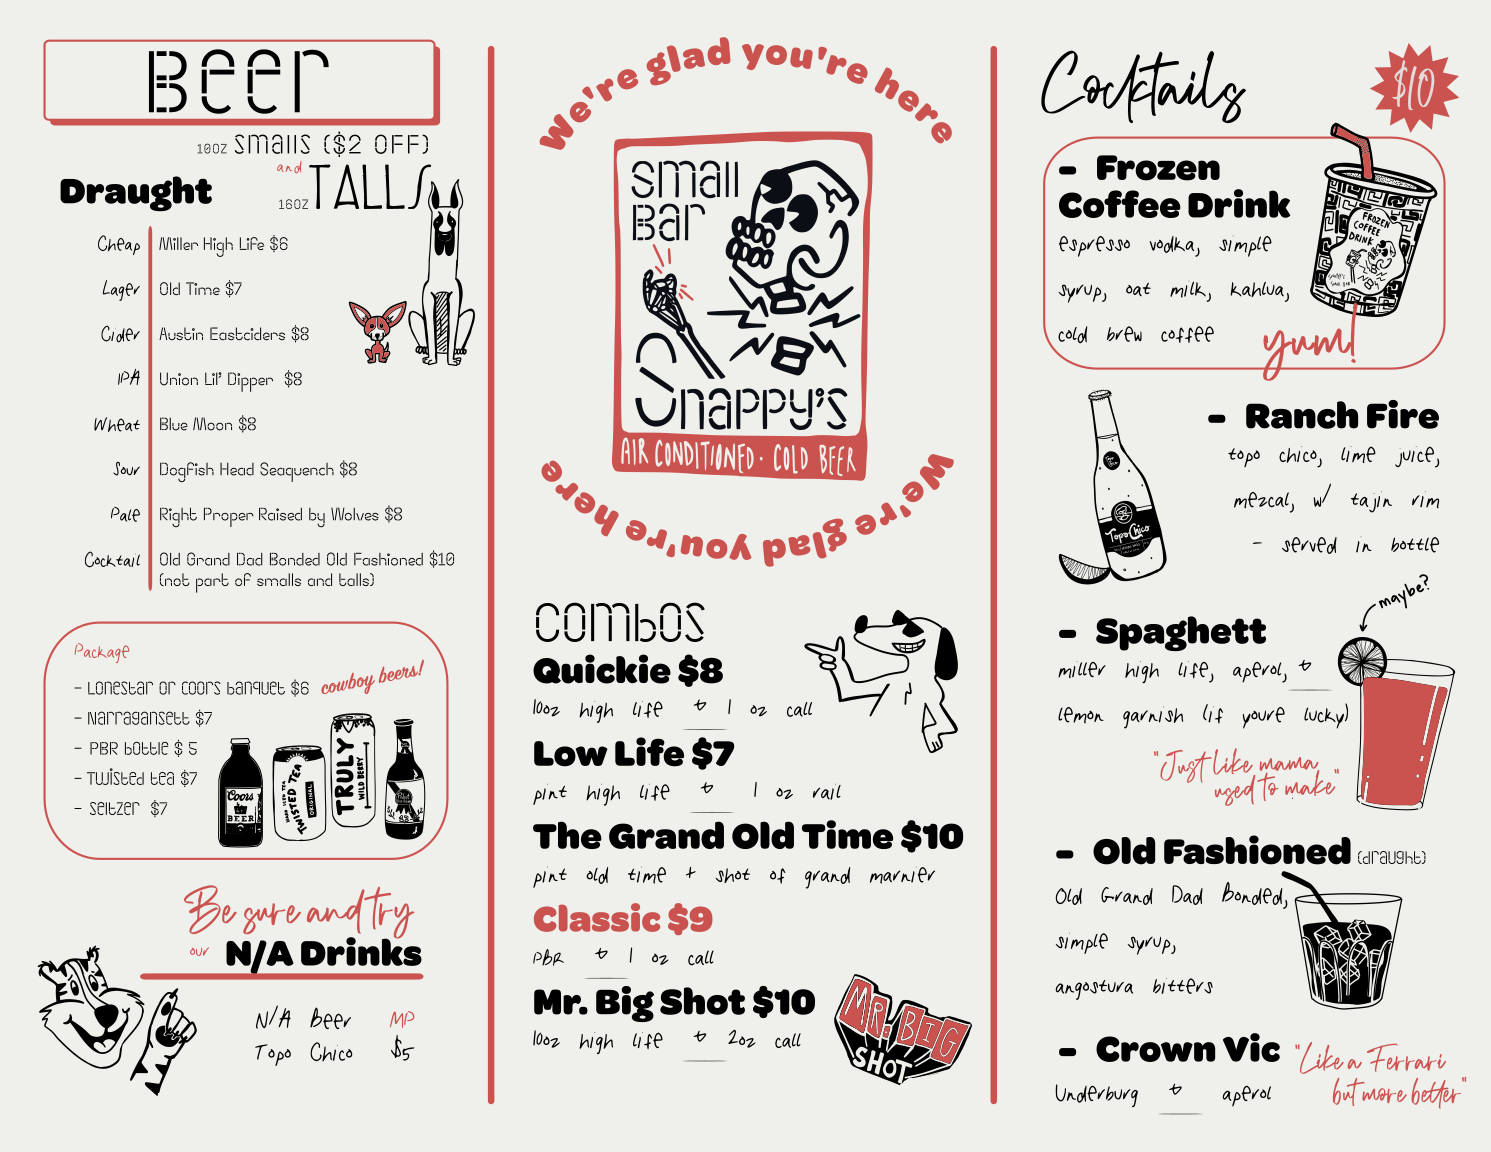 Beer
10oz smalls ($2 off)
and
16oz TALLS
Draught
Cheap Miller High Life $6
Lager Old Time $7
Cider Austin Eastciders $8
IPA Union Lil' Dipper $8
Wheat Blue Moon $8
Sour Dogfish Head Seaquench $8
Pale Right Proper Raised by Wolves $8
Cocktail Old Grand Dad Bonded Old Fashioned $10
(not part of smalls and talls)
Package
- Lonestar or Coors banquet $6 cowboy beers!
- Narragansett $7
- PBR bottle $ 5
- Twisted tea $7
- Seltzer $7
Coors
BEER
HARD ICED TEA
TWISTED TEA
ORIGINAL
TRULY
WILD BERRY
Be sure and try
our N/A Drinks
N/A Beer MP
Topo Chico $5
We're glad you're here
Small
Bar
Snappy's
AIR CONDITIONED · COLD BEER
We're glad you're here
Combos
Quickie $8
10oz high life & 1 oz call
Low Life $7
pint high life & 1 oz rail
The Grand Old Time $10
pint old time + shot of grand marnier
Classic $9
PBR & 1 oz call
Mr. Big Shot $10
10oz high life & 2oz call
MR. BIG
SHOT
Cocktails
$10
- Frozen
Coffee Drink
espresso vodka, simple
syrup, oat milk, kahlua,
cold brew coffee
FROZEN
COFFEE
DRINK
yum!
- Ranch Fire
topo chico, lime juice,
mezcal, w/ tajin rim
- served in bottle
Topo Chico
maybe?
- Spaghett
miller high life, aperol, &
lemon garnish (if youre lucky)
"Just like mama
used to make"
- Old Fashioned (draught)
Old Grand Dad Bonded,
simple syrup,
angostura bitters
- Crown Vic
Underburg & aperol
"Like a Ferrari
but more better"